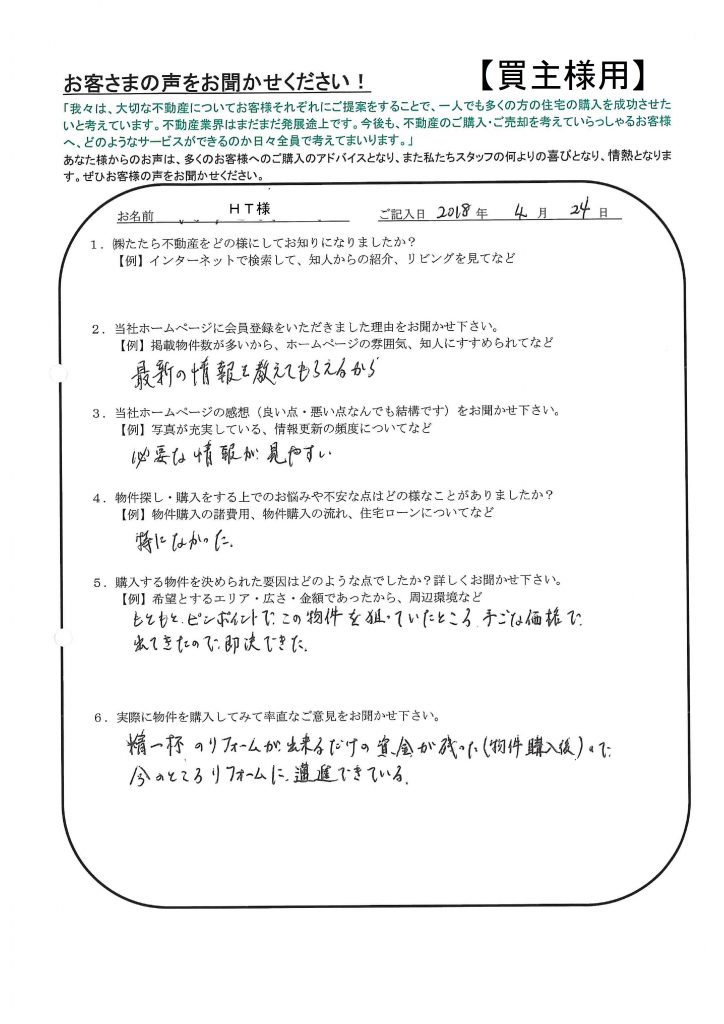 お客さまの声をお聞かせください！
【買主様用】
「我々は、大切な不動産についてお客様それぞれにご提案をすることで、一人でも多くの方の住宅の購入を成功させた
いと考えています。不動産業界はまだまだ発展途上です。今後も、不動産のご購入・ご売却を考えていらっしゃるお客様
へ、どのようなサービスができるのか日々全員で考えてまいります。」
あなた様からのお声は、多くのお客様へのご購入のアドバイスとなり、また私たちスタッフの何よりの喜びとなり、情熱となりま
す。ぜひお客様の声をお聞かせください。
お名前 ＨＴ様 ご記入日 2018 年 4 月 24 日
１．㈱たたら不動産をどの様にしてお知りになりましたか？
【例】インターネットで検索して、知人からの紹介、リビングを見てなど
２．当社ホームページに会員登録をいただきました理由をお聞かせ下さい。
【例】掲載物件数が多いから、ホームページの雰囲気、知人にすすめられてなど
最新の情報を教えてもらえるから
３．当社ホームページの感想（良い点・悪い点なんでも結構です）をお聞かせ下さい。
【例】写真が充実している、情報更新の頻度についてなど
必要な情報が見やすい
４．物件探し・購入をする上でのお悩みや不安な点はどの様なことがありましたか？
【例】物件購入の諸費用、物件購入の流れ、住宅ローンについてなど
特になかった。
５．購入する物件を決められた要因はどのような点でしたか？詳しくお聞かせ下さい。
【例】希望とするエリア・広さ・金額であったから、周辺環境など
もともと、ピンポイントで、この物件を狙っていたところ、手ごろな価格で
出てきたので、即決できた。
６．実際に物件を購入してみて率直なご意見をお聞かせ下さい。
精一杯のリフォームが出来るだけの資金が残った（物件購入後）ので、
今のところリフォームに邁進できている。